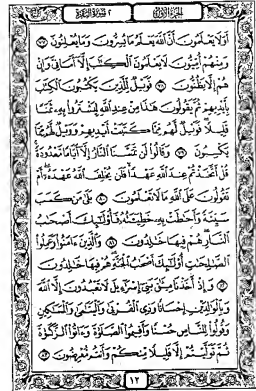 الجزء الأول ٢ سورة البقرة
أَوَلَا يَعْلَمُونَ أَنَّ ٱللَّهَ يَعْلَمُ مَا يُسِرُّونَ وَمَا يُعْلِنُونَ ٧٧
وَمِنْهُمْ أُمِّيُّونَ لَا يَعْلَمُونَ ٱلْكِتَٰبَ إِلَّآ أَمَانِيَّ وَإِنْ
هُمْ إِلَّا يَظُنُّونَ ٧٨ فَوَيْلٌ لِّلَّذِينَ يَكْتُبُونَ ٱلْكِتَٰبَ
بِأَيْدِيهِمْ ثُمَّ يَقُولُونَ هَٰذَا مِنْ عِندِ ٱللَّهِ لِيَشْتَرُوا۟ بِهِۦ ثَمَنًا
قَلِيلًا فَوَيْلٌ لَّهُم مِّمَّا كَتَبَتْ أَيْدِيهِمْ وَوَيْلٌ لَّهُم مِّمَّا
يَكْسِبُونَ ٧٩ وَقَالُوا۟ لَن تَمَسَّنَا ٱلنَّارُ إِلَّآ أَيَّامًا مَّعْدُودَةً
قُلْ أَتَّخَذْتُمْ عِندَ ٱللَّهِ عَهْدًا فَلَن يُخْلِفَ ٱللَّهُ عَهْدَهُۥٓ أَمْ
تَقُولُونَ عَلَى ٱللَّهِ مَا لَا تَعْلَمُونَ ٨٠ بَلَىٰ مَن كَسَبَ
سَيِّئَةً وَأَحَٰطَتْ بِهِۦ خَطِيٓـَٔتُهُۥ فَأُو۟لَٰٓئِكَ أَصْحَٰبُ
ٱلنَّارِ هُمْ فِيهَا خَٰلِدُونَ ٨١ وَٱلَّذِينَ ءَامَنُوا۟ وَعَمِلُوا۟
ٱلصَّٰلِحَٰتِ أُو۟لَٰٓئِكَ أَصْحَٰبُ ٱلْجَنَّةِ هُمْ فِيهَا خَٰلِدُونَ
٨٢ وَإِذْ أَخَذْنَا مِيثَٰقَ بَنِىٓ إِسْرَٰٓءِيلَ لَا تَعْبُدُونَ إِلَّا ٱللَّهَ
وَبِٱلْوَٰلِدَيْنِ إِحْسَانًا وَذِى ٱلْقُرْبَىٰ وَٱلْيَتَٰمَىٰ وَٱلْمَسَٰكِينِ
وَقُولُوا۟ لِلنَّاسِ حُسْنًا وَأَقِيمُوا۟ ٱلصَّلَوٰةَ وَءَاتُوا۟ ٱلزَّكَوٰةَ
ثُمَّ تَوَلَّيْتُمْ إِلَّا قَلِيلًا مِّنكُمْ وَأَنتُم مُّعْرِضُونَ ٨٣
١٢